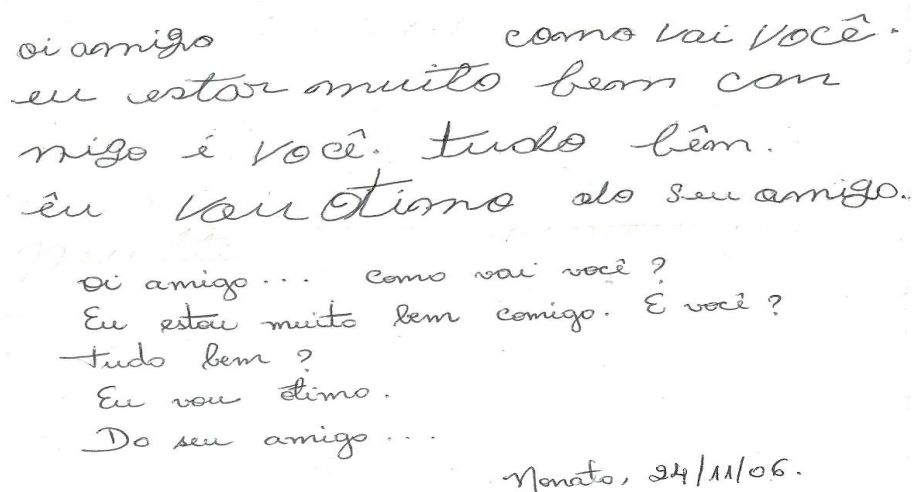 oi amigo como vai você.
eu estar muito bem con
migo é você. tudo bêm.
êu vou otimo do seu amigo.
oi amigo... como vai você?
Eu estou muito bem comigo. E você?
tudo bem?
Eu vou ótimo.
Do seu amigo...
Nonato, 24/11/06.